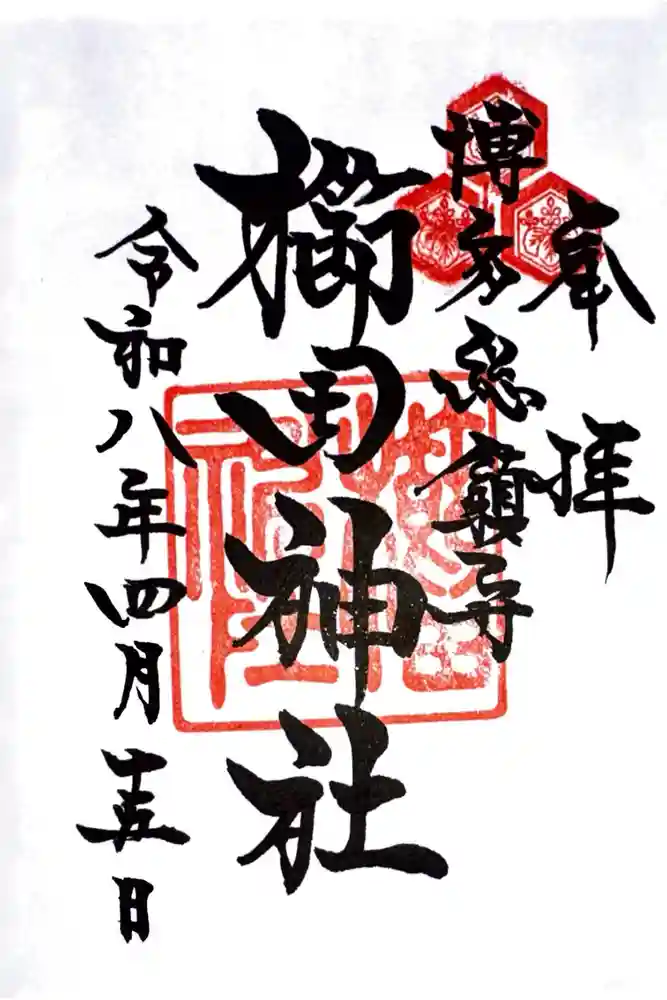 奉拝
博多総鎮守
櫛田神社
令和八年四月十五日
櫛田
神社